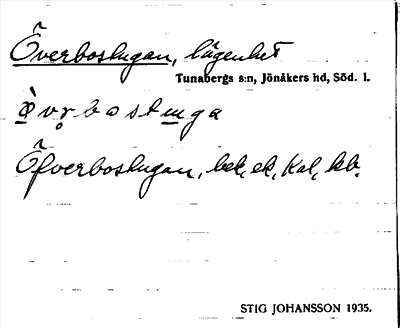 Överbostugan, lägenhet
Tunabergs s:n, Jönåkers hd, Söd. l.
Öfverbostugan, bek, ek, Kal, kb.
STIG JOHANSSON 1935.